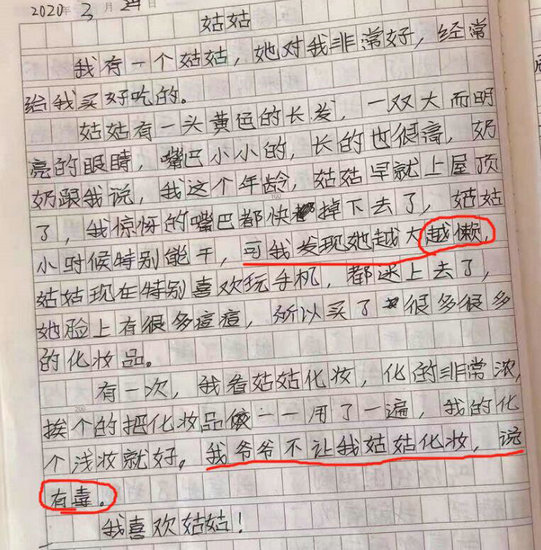 2020年3月24日
姑姑
我有一个姑姑，她对我非常好，经常
给我买好吃的。
姑姑有一头黄色的长发，一双大而明
亮的眼睛，嘴巴小小的，长的也很高，奶
奶跟我说，我这个年龄，姑姑早就上屋顶
了，我惊讶的嘴巴都快掉下去了，姑姑
小时候特别能干，可我发现她越大越懒，
姑姑现在特别喜欢玩手机，都迷上去了，
她脸上有很多痘痘，所以买了很多很多
的化妆品。
有一次，我看姑姑化妆，化的非常浓，
挨个的把化妆品一一用了一遍，我的化
个浅妆就好。我爷爷不让我姑姑化妆，说
有毒。
我喜欢姑姑！